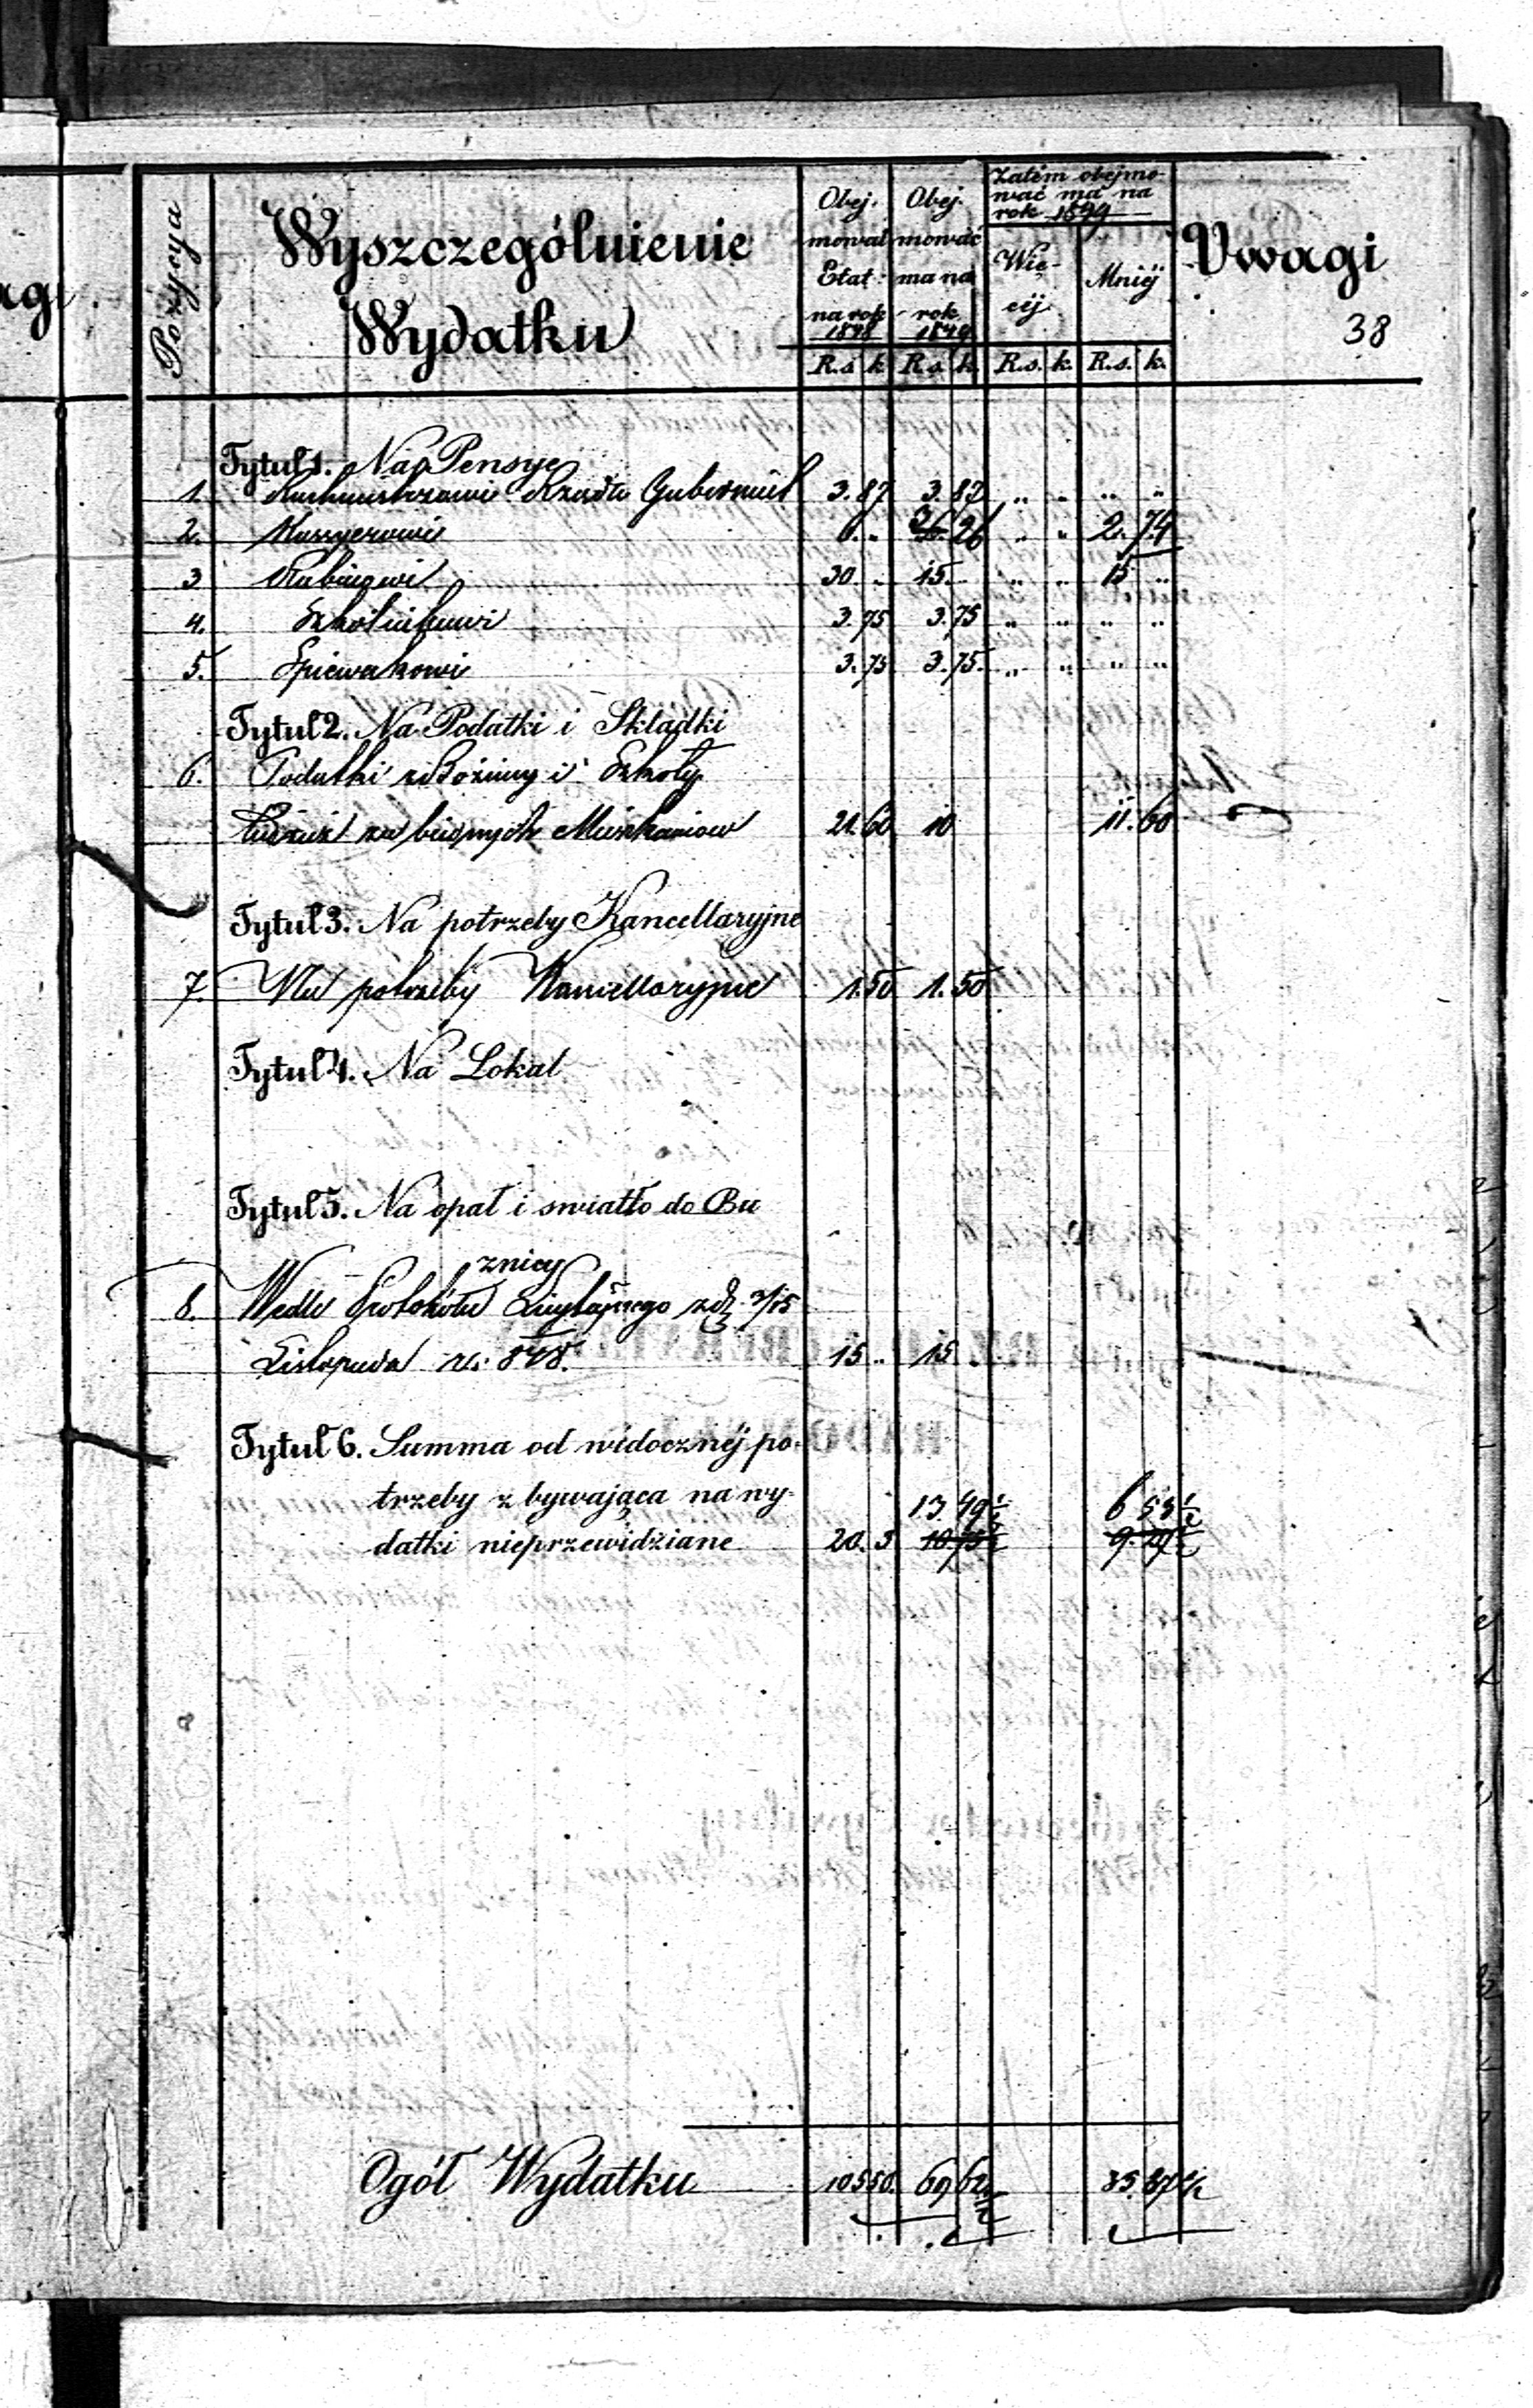 agi
Pozycya
Wyszczególnienie
Wydatku
Obej-
mował
Etat
na rok
1848
Obej-
mować
ma na
rok
1849
Zatém obejmo-
wać ma na
rok 1849
Wię-
céj
Mniéj
Uwagi
38
R.s k R.s k. R.s. k. R.s. k.
Tytuł 1. Na Pensye
1. Rachmistrzowi Rządu Gubernial 3. 87 3. 87 " " " "
2. Kassyerowi 6. " 26 " " 2. 74
3 Rabinowi 30. " 15. " " 15 "
4. Szkolnikowi 3. 75 3. 75 " " " "
5. Spiewakowi 3. 75 3. 75. " " " "
Tytuł 2. Na Podatki i Składki
6. Podatki z Bożnicy i Szkoły
tudzież za biednych Mieszkańcow 21. 60 10 11. 60
Tytuł 3. Na potrzeby Kancellaryjne
7. Na potrzeby Kancellaryjne 1. 50 1. 50
Tytuł 4. Na Lokal
Tytuł 5. Na opał i swiatło do Bu
znicy
8. Wedle Protokółu Licytacyjnego z d. 3/15
Listopada r. 848. 15 " 15 "
Tytuł 6. Summa od widocznéj po-
trzeby zbywająca na wy- 13. 49½ 6 53½
datki nieprzewidziane 20. 3
Ogół Wydatku 105 50. 69 62½ 35. 87½